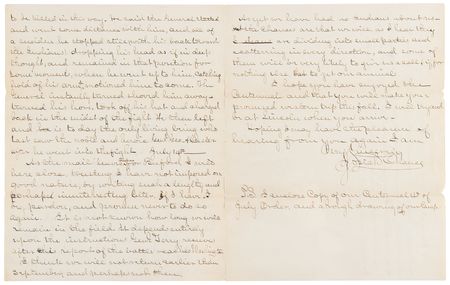 to be killed in this way. He said the General rode
and went some distance with him, and all of
a sudden he stopped still, with his back toward
the Indians dropping his head as if in deep
thought, and remained in that position for
some moment, when he went up to him catching
hold of his arm, motioned him to come. The
General instantly turned toward him and
turned his horse, took off his hat and charged
back in the midst of the fight. He then left
and he is to day the only living being who
last saw the noble and brave Genl Geo. A. Custer
when he went into the fight. July 10th
As the mail leaves for Buford I will
here close, trusting I have not imposed on
good nature, by writing such a lengthy and
perhaps uninteresting letter. If I have
so, pardon, and promise never to do so
again. It is not known how long we will
remain in the field. It depend entirely
upon the instructions Genl Terry receives
after the report of the battle reaches
I think we will not return earlier than
September and perhaps not then
As yet we have had no Indians about here
the Chances are that we will, as
are dividing into small parties and
scattering in every direction, and some of
them will be very likely to give us a call, if for
nothing else but to get our animals
I hope you have enjoyed the
Centennial, and that you will make your
promised visit up this fall. I will try and
be at Lincoln when you arrive.
Hoping I may have the pleasure of
hearing from you again I am
Very Sincerely
P.S. I enclose Copy of our Centennial 4th of
July Order, and a rough drawing of our Camp